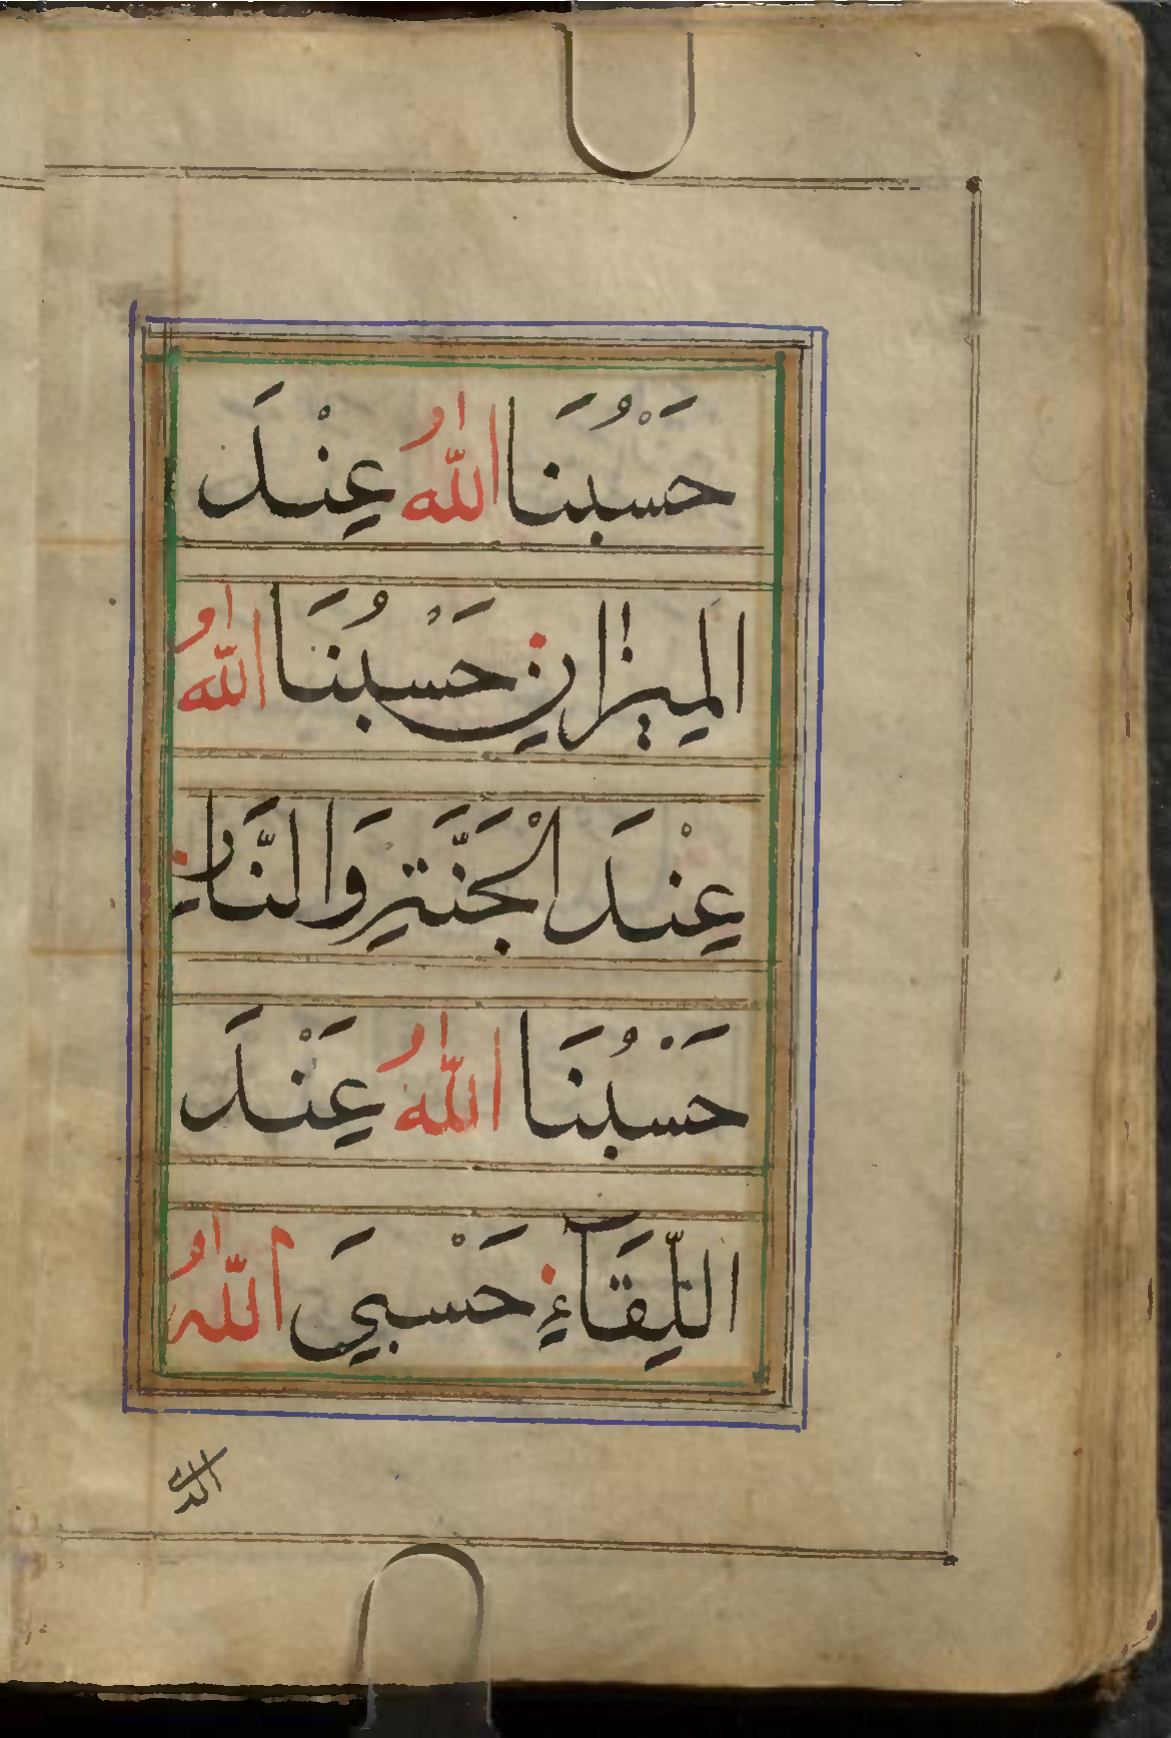 حَسْبُنَا اللّٰهُ عِنْدَ
الْمِيزَانِ حَسْبُنَا اللّٰهُ
عِنْدَ الْجَنَّةِ وَالنَّارِ
حَسْبُنَا اللّٰهُ عِنْدَ
اللِّقَآءِ حَسْبِيَ اللّٰهُ
الذى